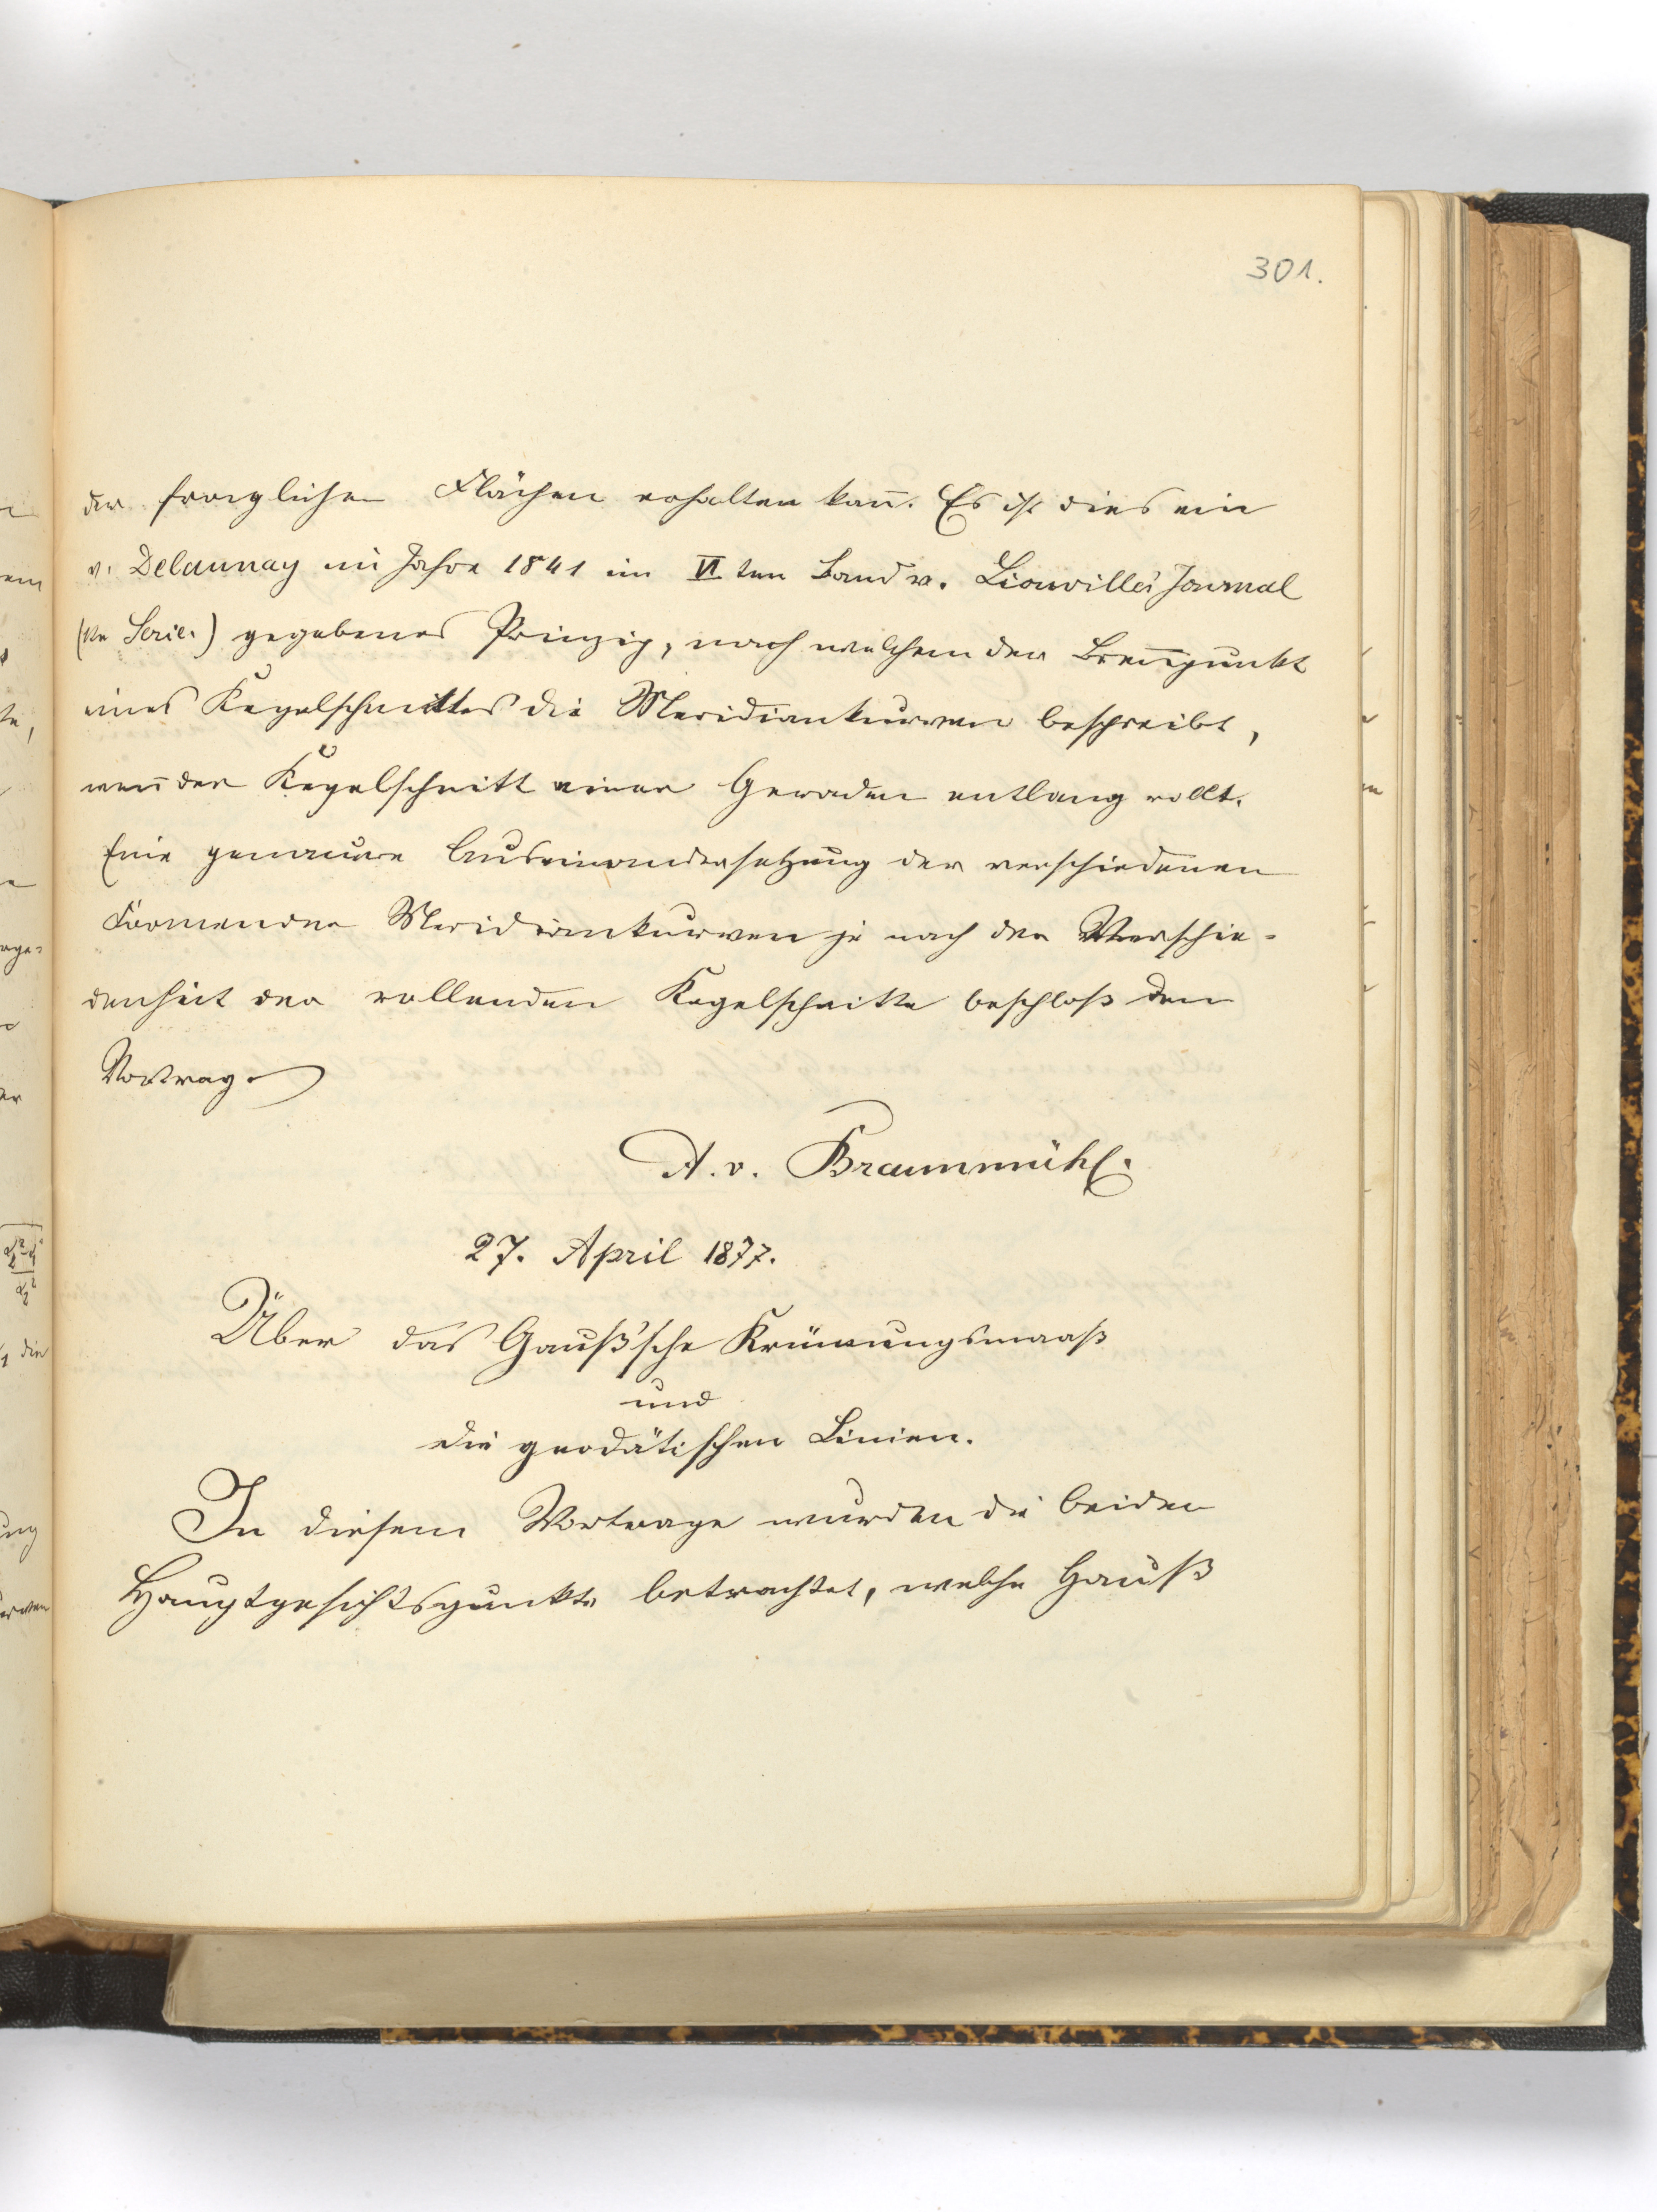 301.
der fraglichen Flächen erhalten kañ. Es ist dies ein
v. Delaunay im Jahre 1841 im VI ten Band v. Liouville's Journal
(Ire Serie.) gegebenes Prinzip, nach welchem der Breñpunkt
eines Kegelschnittes die Meridiankurven beschreibt,
weñ der Kegelschnitt einer Geraden entlang rollt.
Eine genauere Auseinandersetzung der verschiedenen
Formen der Meridiankurven je nach der Verschie-
denheit der rollenden Kegelschnitte beschloß den
Vortrag.
A. v. Braunmühl.
27. April 1877.
Über das Gauß'sche Krümungsmaaß
und
die geodätischen Linien.
In diesem Vortrage wurden die beiden
Hauptgesichtspunkte betrachtet, welche Gauß